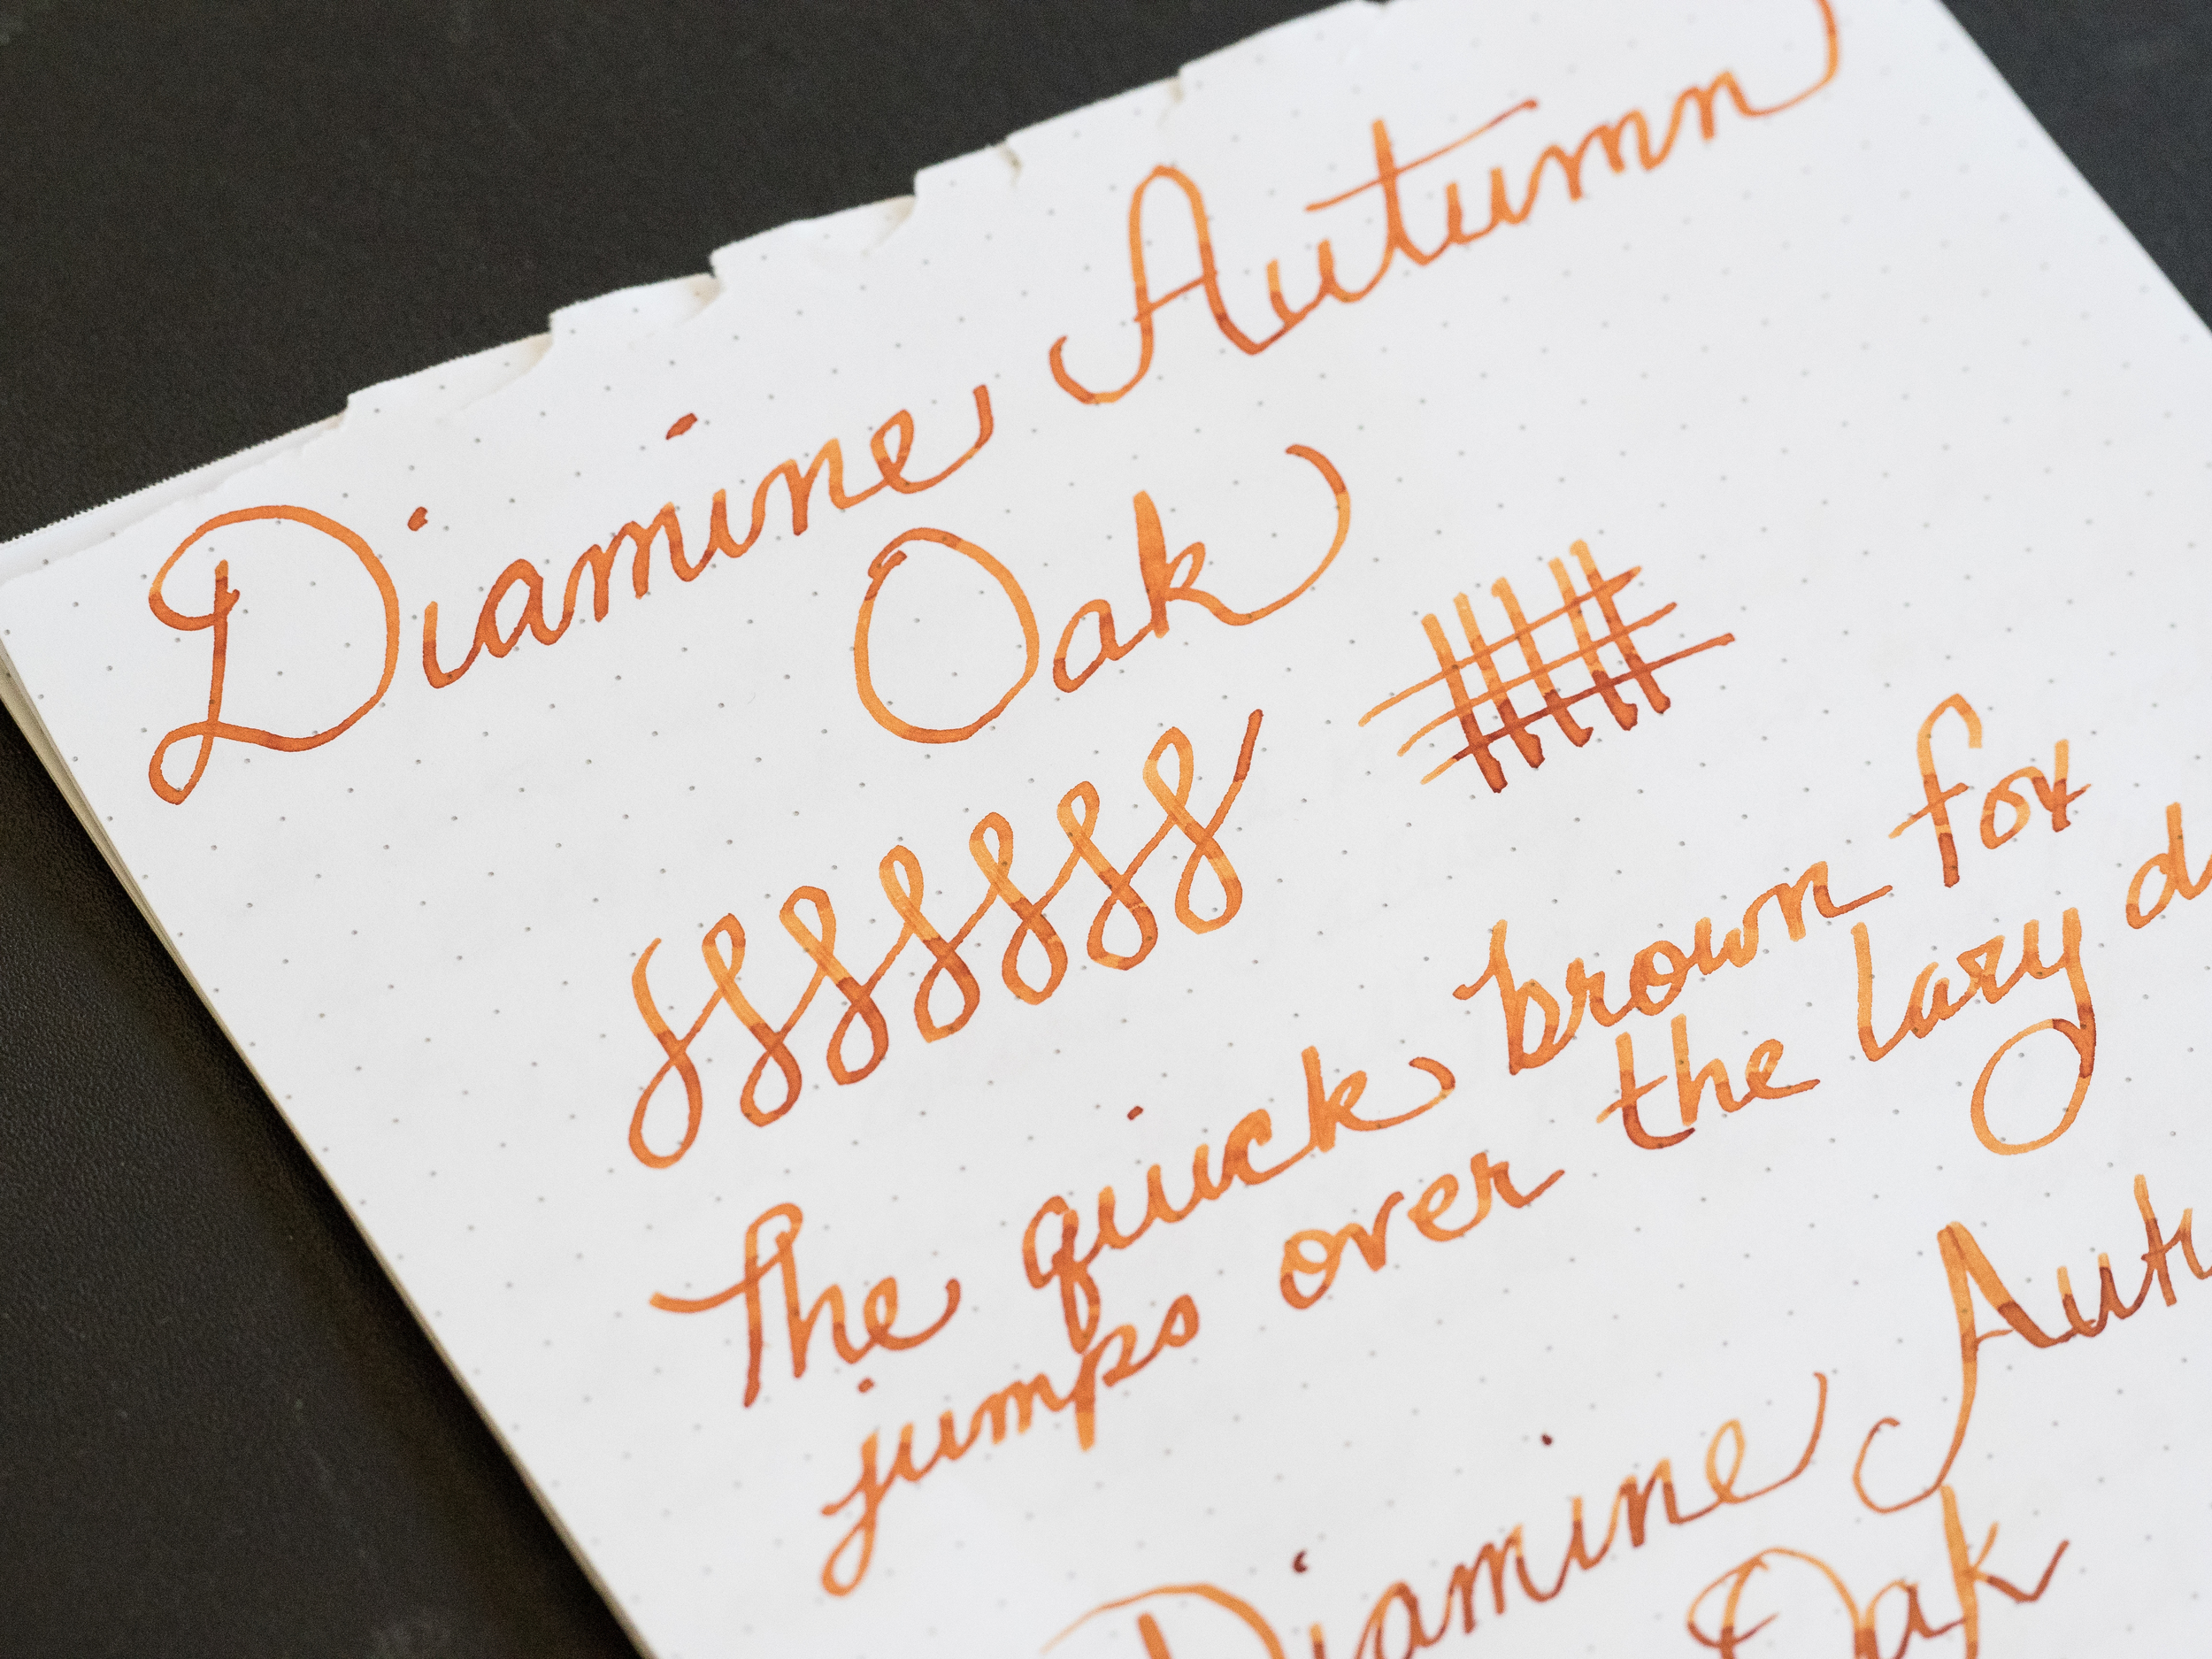 Diamine Autumn
Oak
The quick brown fox
jumps over the lazy
Diamine
Oak